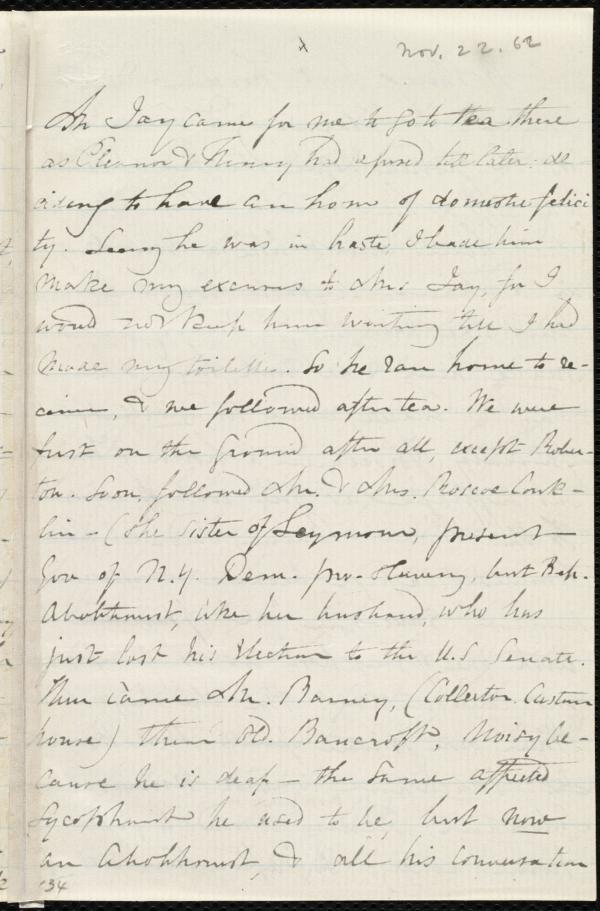 Nov. 22. 62
Mr Jay came for me to go to tea there
as Eleanor & Henry had defused till later: de
ciding to have an hour of domestic felici
ty. Seeing he was in haste, I bade him
make my excuses to Mrs Jay, for I
would not keep him waiting till I had
made my toilette. So he ran home to re-
ceive, & we followed after tea. We were
first on the ground after all, except Rober-
ton. Soon, followed Mr. & Mrs. Roscoe Conk-
lin - (the sister of Seymour, present
Gov of N.Y. Dem. pro-slavery, but Rep.
Abolitionist, like her husband, who has
just lost his election to the U.S Senate.
Then came Mr. Barney, (Collector Custom
house) then old Bancroft, noisy be-
cause he is deaf - the same affected
Sycophant he used to be, but now
an Abolitionist, & all his conversation
134